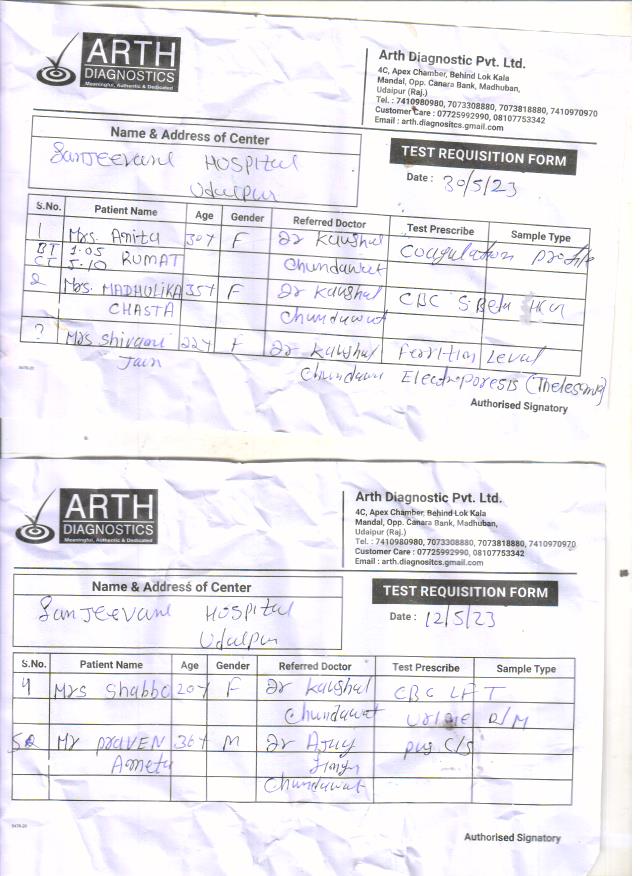 ARTH
DIAGNOSTICS
Meaningful, Authentic & Dedicated
Arth Diagnostic Pvt. Ltd.
4C, Apex Chamber, Behind Lok Kala
Mandal, Opp. Canara Bank, Madhuban,
Udaipur (Raj.)
Tel. : 7410980980, 7073308880, 7073818880, 7410970970
Customer Care : 07725992990, 08107753342
Email : arth.diagnositcs.gmail.com
Name & Address of Center
Sanjeevani HOSPital
Udaipur
TEST REQUISITION FORM
Date : 30/5/23
S.No. Patient Name Age Gender Referred Doctor Test Prescribe Sample Type
1 Mrs. Anita 30y F Dr Kaushal Coagulation profile
BT 1.05 KUMAT Chundawat
CT 5.10
2 Mrs. MADHULIKA 35y F Dr Kaushal CBC S. Beta HCG
CHASTA Chundawat
? Mrs Shivani 22y F Dr Kaushal Ferritin Level
Jain Chundawat Electroporesis
Authorised Signatory
ARTH
DIAGNOSTICS
Meaningful, Authentic & Dedicated
Arth Diagnostic Pvt. Ltd.
4C, Apex Chamber, Behind Lok Kala
Mandal, Opp. Canara Bank, Madhuban,
Udaipur (Raj.)
Tel. : 7410980980, 7073308880, 7073818880, 7410970970
Customer Care : 07725992990, 08107753342
Email : arth.diagnositcs.gmail.com
Name & Address of Center
Sanjeevani HOSPital
Udaipur
TEST REQUISITION FORM
Date : 12/5/23
S.No. Patient Name Age Gender Referred Doctor Test Prescribe Sample Type
4 Mrs Shabbo 20y F Dr Kaushal CBC LFT
Chundawat Urine R/M
5 Mr PRAVEN 36y M Dr Ajay pus C/S
Ameta Singh
Chundawat
Authorised Signatory